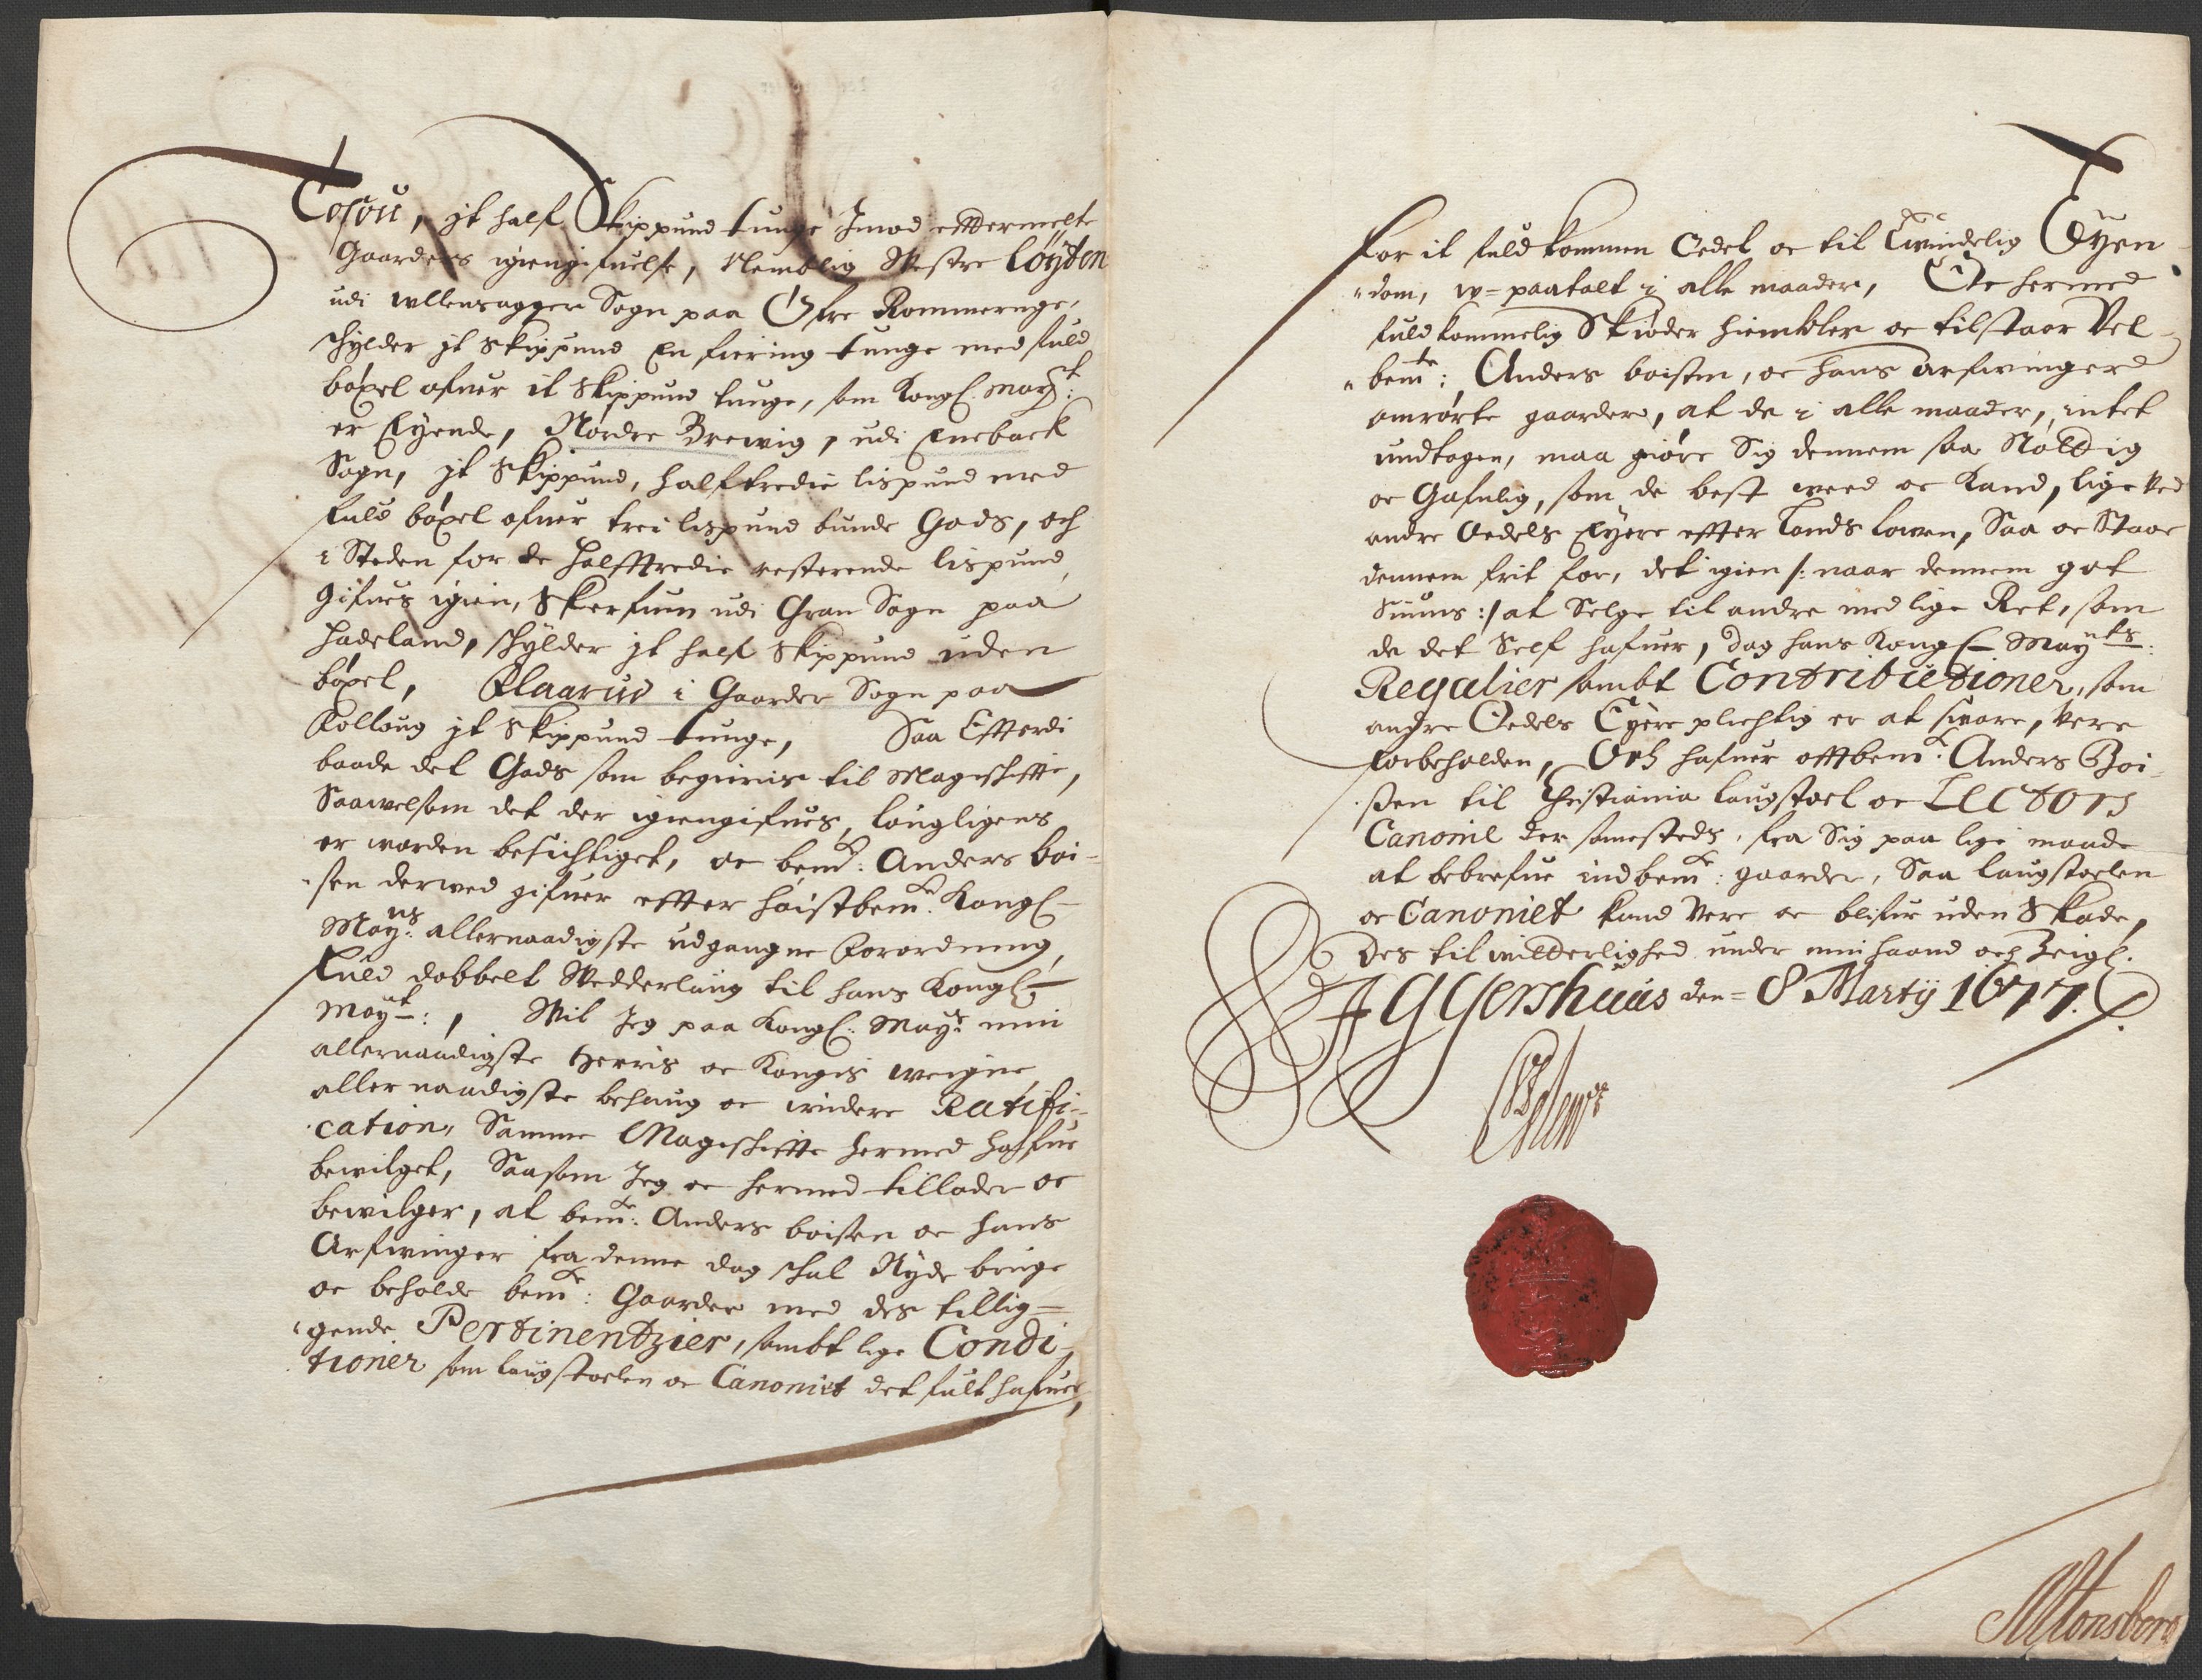 Cosou, jt half Skippund tunge Imod efftermelte
Gaarders igiengifuelse, Nemblig Westre Löyten
udi Ullensagger Sogn paa Ofre Rommeruge,
schylder jt Skippund En fiering tunge med fuld
böxel ofuer it Skippund tunge, som Kongl. May:t
er Eyende, Nordre Brewig, udi Eneback
Sogn, jt Skippund, halftredie lispund med
fuld böxel ofuer trei lispund bunde Gods, och
i Steden for de halfftredie resterende lispund
gifues igien, Skierfuin udi Gran Sogn paa
Hadeland, schylder jt half Skippund uden
böxel, Elaarud i Gaarder Sogn paa
Folloug jt Skippund tunge, Saa Efterdi
baade det Gods som begieris til Mageschiffte,
Saawelsom det der igiengifues, lougligens
er worden besichtiget, oc bemt: Anders boi-
sen derwed gifuer effter höistbemte: Kongl
Mayts: allernaadigste udgangne Forordning,
Fuld dobbelt Wedderlaug til hans Kongl
Mayt:, Wil Jeg paa Kongl: Mayts: min
allernaadigste Herris oc Kongis weigne
allernaadigste behaug oc widere Ratifi-
cation, Samme Mageschiffte hermed hafue
bewilget, Saasom Jeg oc hermed tillader oc
bewilger, at bemte: Anders boisen oc hans
Arfwinger fra denne dag schal Nyde bruge
oc beholde bemte: Gaarder med des tillig-
gende Pertinentzier, sambt lige Condi-
tioner som laugstoelen oc Canoniet det fult hafuer,
for it fuldkommen Oedel oc til Ewindelig Eyen
dom, w-paatalt i alle maader, Oc hermed
fuldkommelig Skiöder hiembler oc tilstaar Vel-
bemte: Anders boisen, oc hans arfwinger
omrörte gaarder, at de i alle maader, intet
undtagen, maa giöre Sig dennem saa Nöttig
oc Gafnlig, som de best weed oc Kand, lige ved
andre Oedels Eyere effter Lands lowen, Saa oc Staar
dennem frit for, det igien /: naar dennem got
Siuns :/ at Selge til andre med lige Ret, som
de det Self hafuer, dog hans Kongl Mayts:
Regalier sambt Contributioner, som
andre Oedels Eyere plichtig er at suare, vere
forbeholden, Och hafuer offtbemt: Anders Boi-
sen til Christiania laugstoel oc Lectors
Canonie der samesteds, fra Sig paa lige maade
at bebrefue indbemte: gaarder, Saa laugstoelen
oc Canoniet kand vere oc blifue uden Skade,
Des til witterlighed under min haand och Zeigl.
Aggershuus den= 8 Martij 1677.